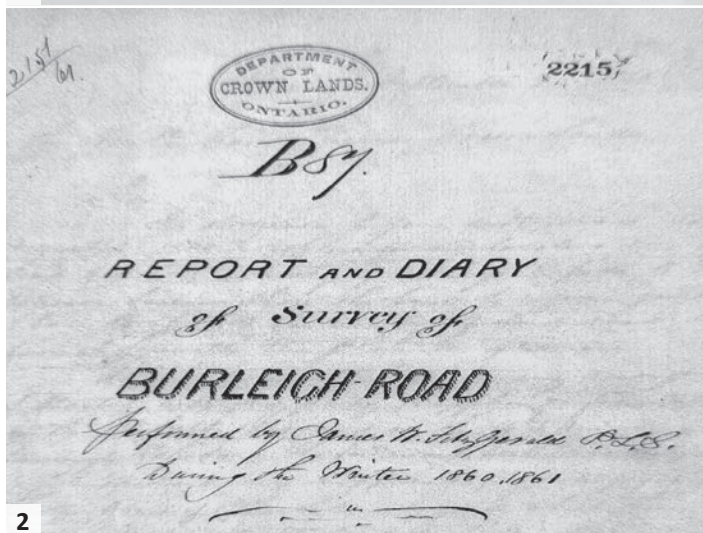 2151/61.
DEPARTMENT
OF
CROWN LANDS.
ONTARIO.
2215
B 87.
REPORT AND DIARY
of Survey of
BURLEIGH ROAD
Performed by James W. Fitzgerald P.L.S.
During the Winter 1860,1861
2